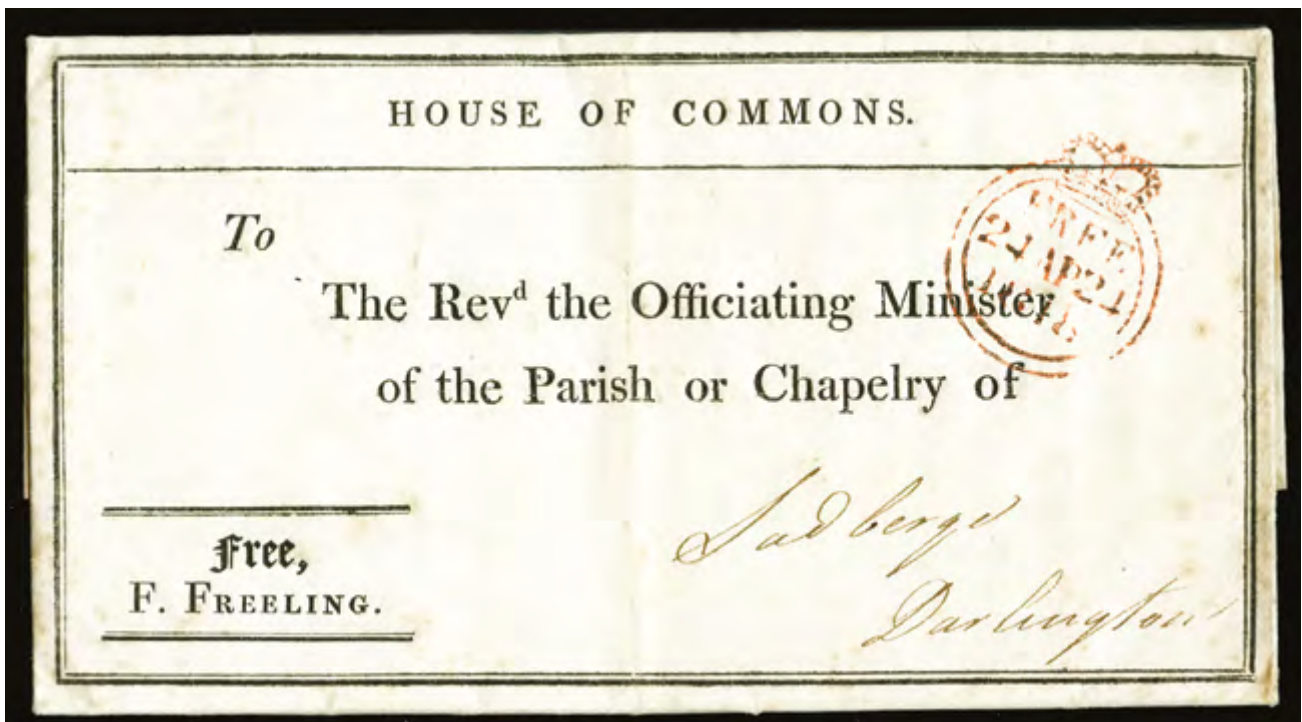 HOUSE OF COMMONS.
To
The Revd the Officiating Minister
of the Parish or Chapelry of
Sadberge
Darlington
Free,
F. FREELING.
FREE